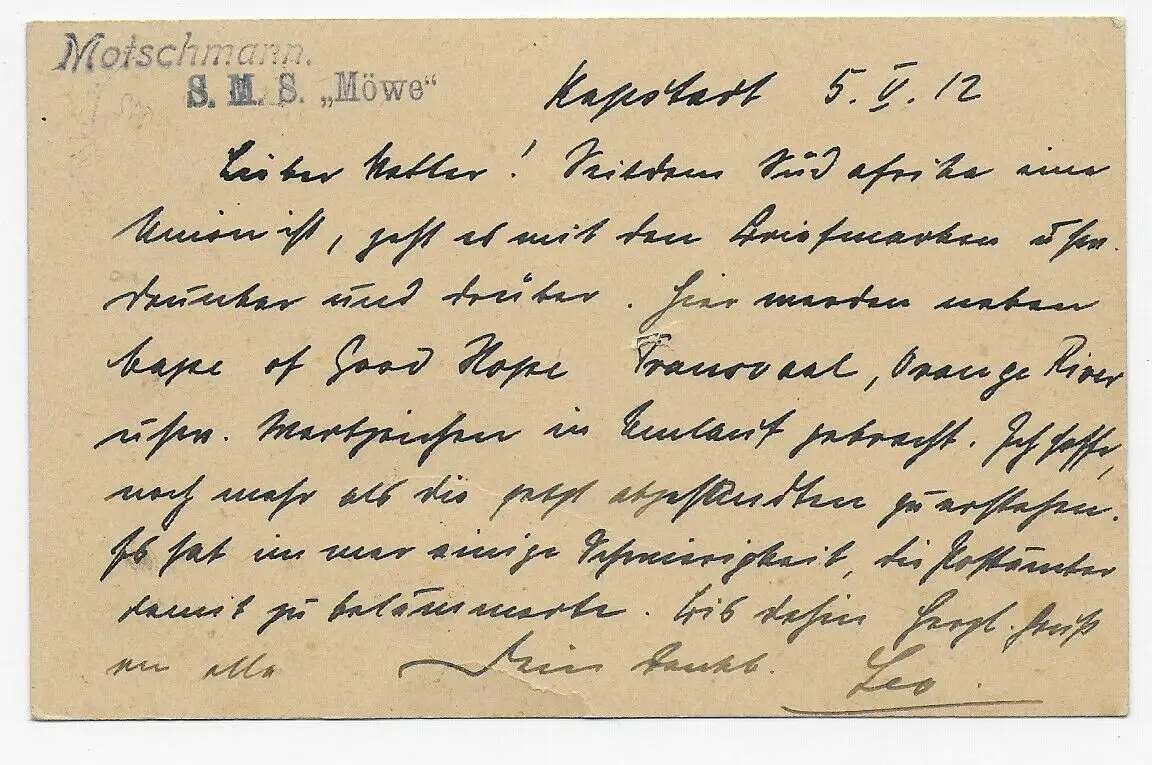 Motschmann.
S. M. S. „Möwe“
Kapstadt 5. V. 12
Lieber Vetter! Seitdem Südafrika eine
Union ist, geht es mit den Briefmarken usw.
drunter und drüber. Hier werden neben
Cape of Good Hope Transvaal, Orange River
usw. Wertzeichen in Umlauf gebracht. Ich hoffe,
noch mehr als die jetzt abgesandten zu erstehen.
Es hat immer einige Schwierigkeit, die Postämter
damit zu . Bis dahin herzl. Gruß
an alle Dein dankb. Leo.